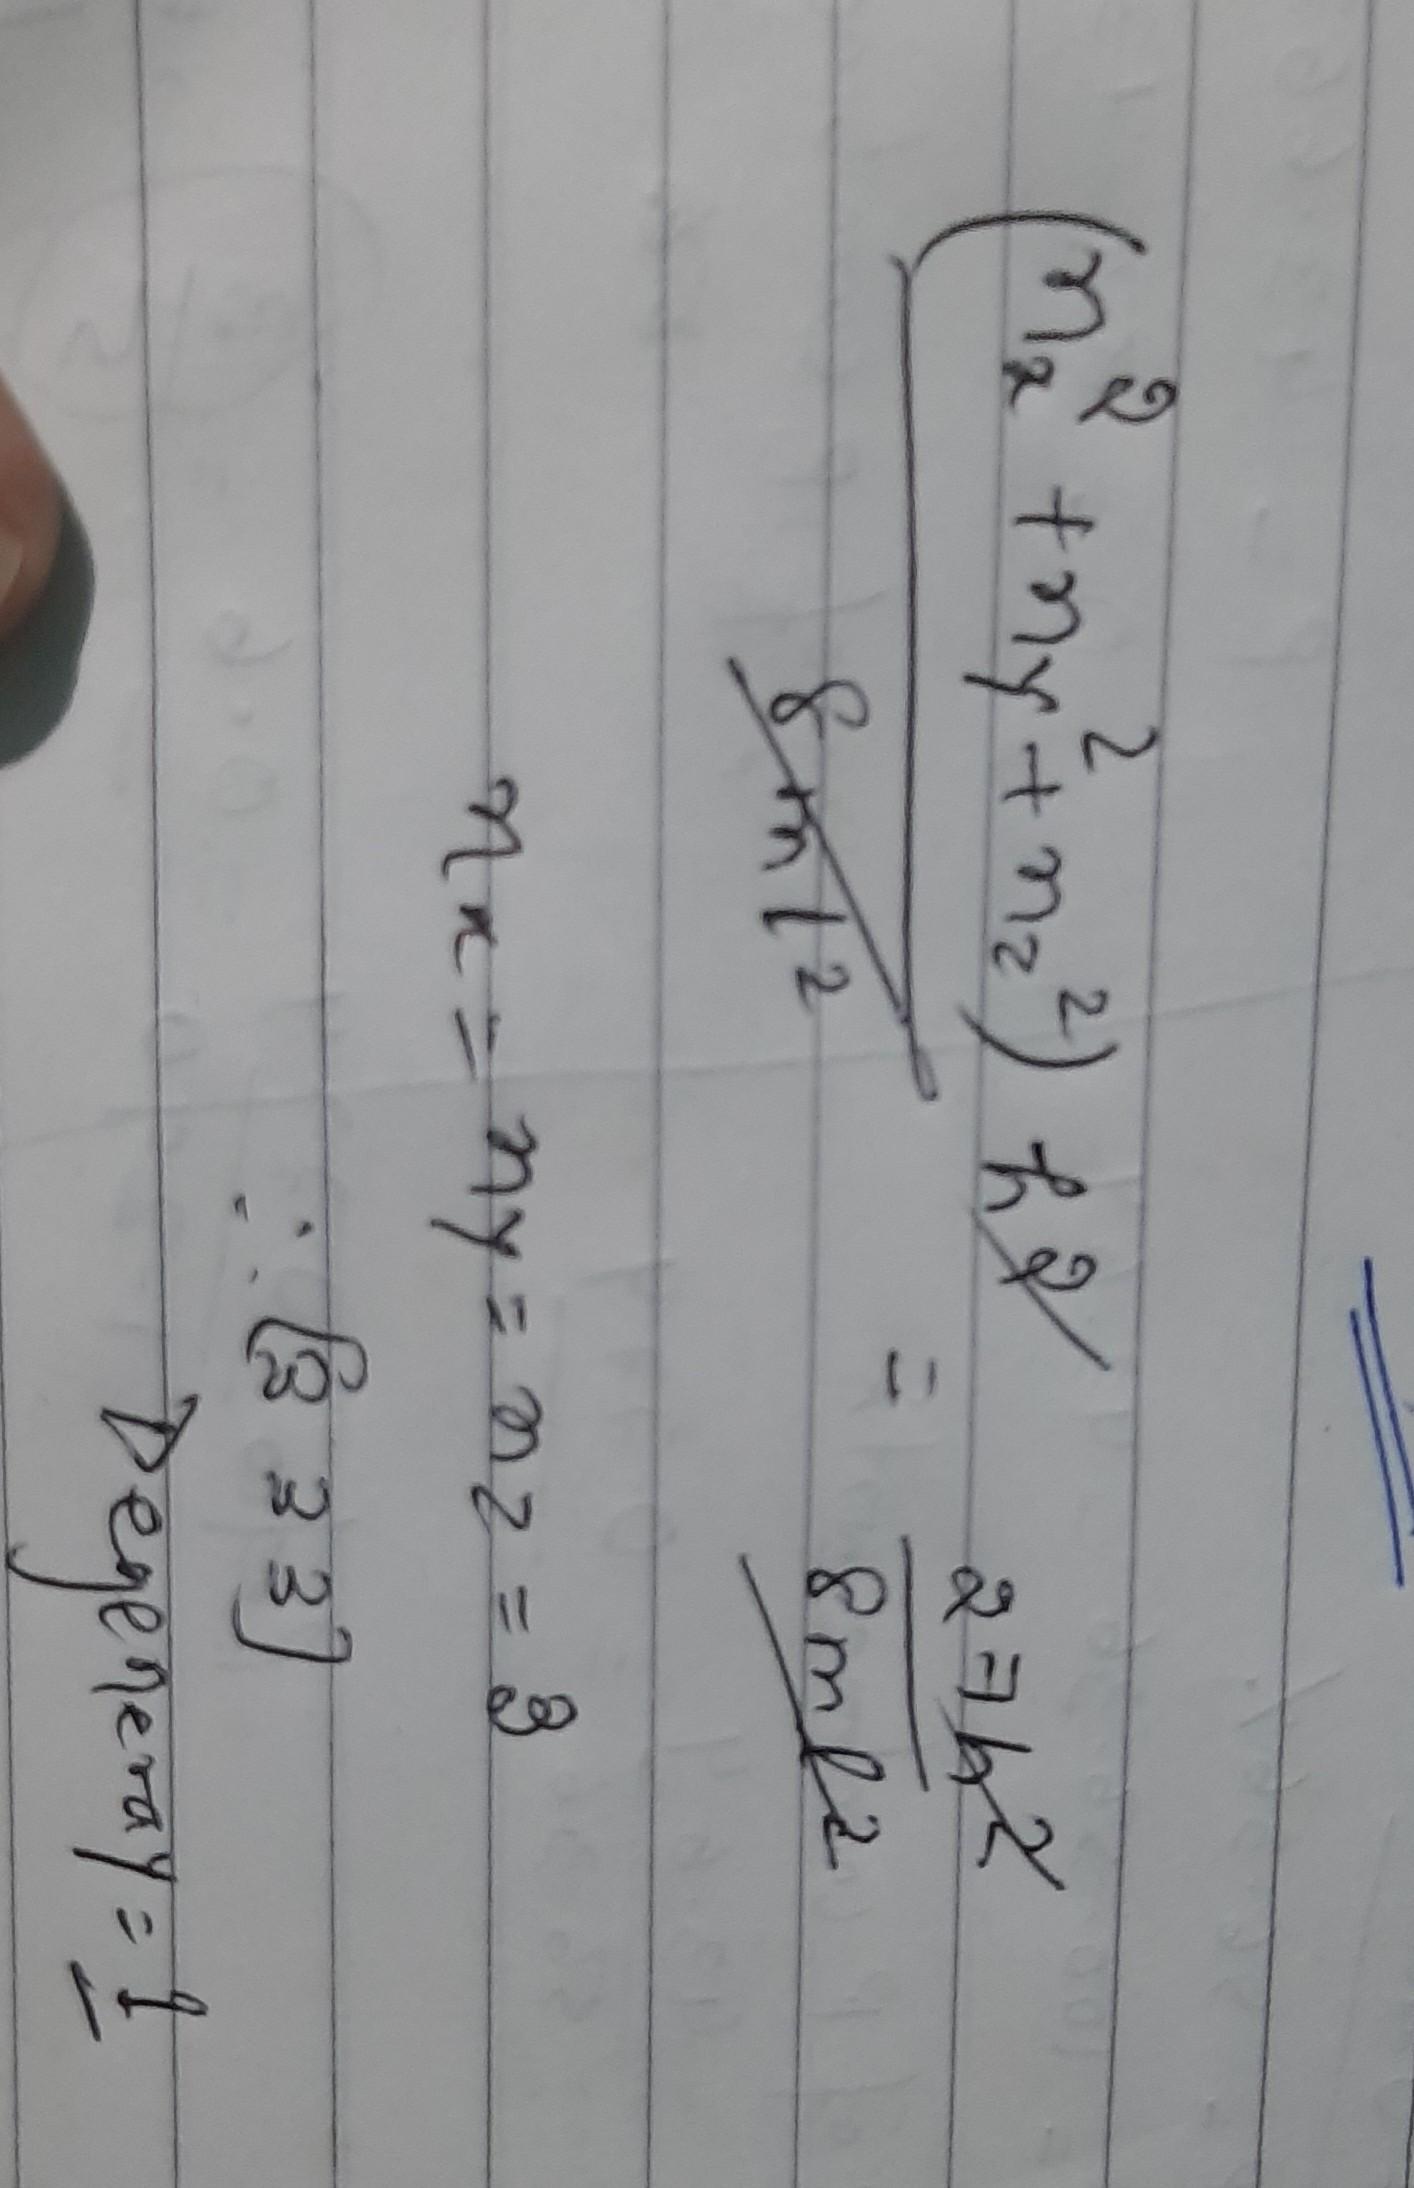 (nx² + ny² + nz²) h² / 8ml² = 27h² / 8ml²
nx = ny = nz = 3
∴ [3 3 3]
Degeneray = 1